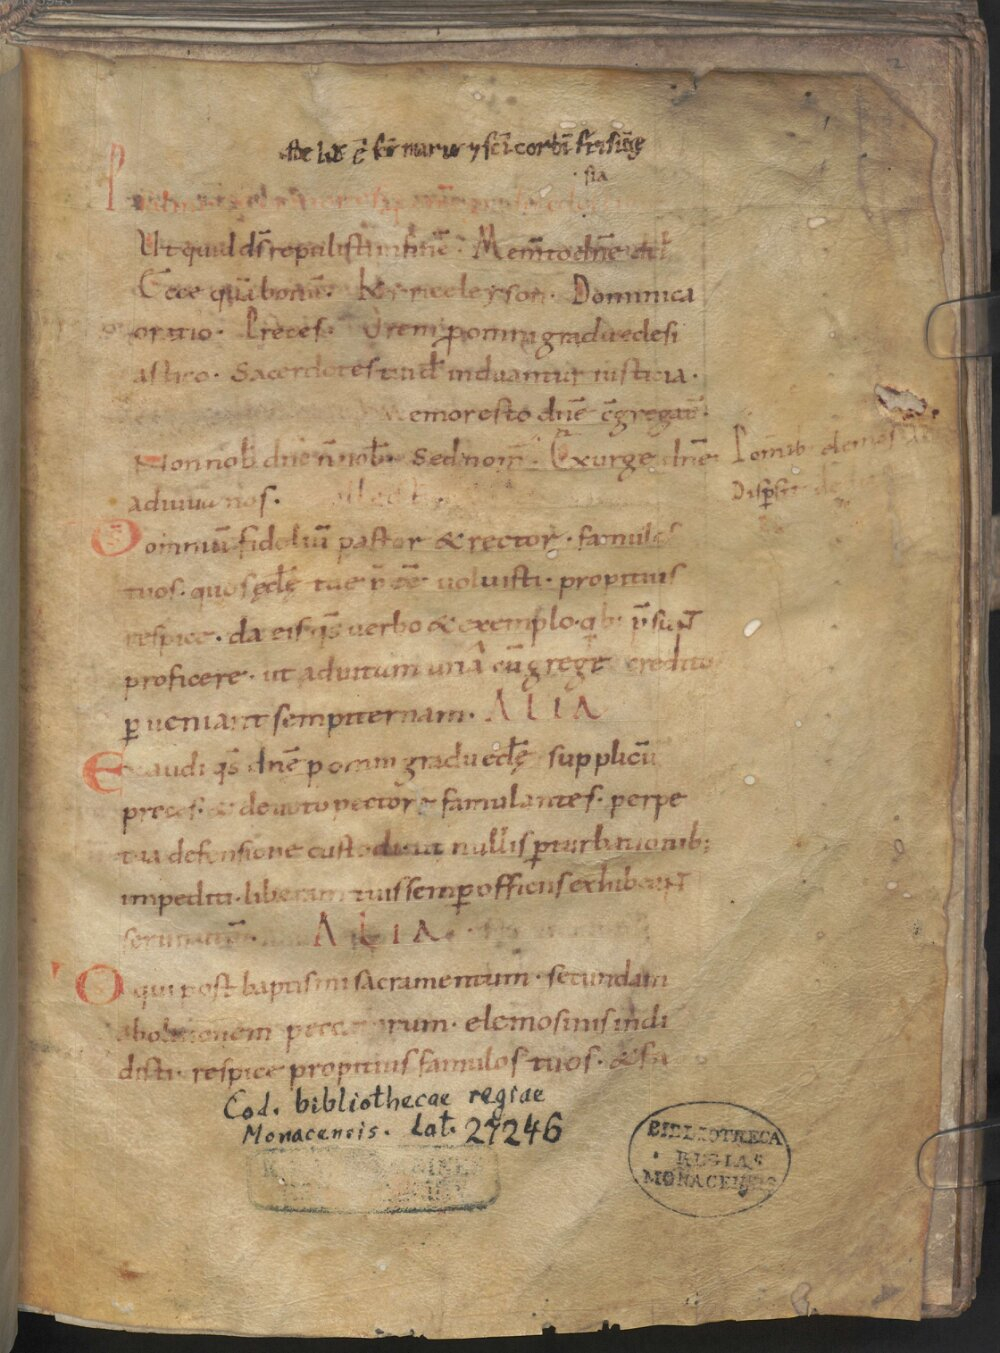 Iste lib̄ ē sc̄e marie ⁊ sc̄i corb̄i frisīg
sia
Ut quid dſ repulisti in finē. Mem̄to dn̄e
Ecce quā bonū. Kyrieeleyson. Dominica
oratio. Preces. Orem̄ p omni gradu ęclesi
astico. Sacerdotes tui induantur iusticia.
Memor esto dn̄e c̄gregat̄.
Non nob̄ dn̄e n̄ nob̄. Sed nom̄. Exurge dn̄e
adiuua nos.
P omīb elemos
Dispersit de
Omniū fideliū pastor & rector. famulos
tuos. quos ęcl̄ę tue p̄ēē uoluisti. propitius
respice. da eis q̄s uerbo & exemplo qb; p̄sunt
proficere. ut ad uitam unā cū grege credito
p ueniant sempiternam. ALIA
Exaudi q̄s dn̄e p omni gradu ecl̄ę supplicū
preces. & deuoto pectore famulantes. perpe
tua defensione custodi. ut nullis pturbationib;
impediti. liberam tuis semp officiis exhibeant
seruitutē. ALIA
O qui post baptismi sacramentum. secundam
abolitionem peccatorum. elemosinis indi
disti. respice propitius famulos tuos. & fa
Cod. bibliothecae regiae
Monacensis. Lat. 27246
BIBLIOTHECA
REGIAE
MONACENSIS